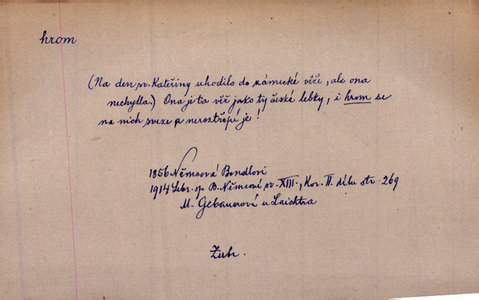 hrom
(Na den sv. Kateřiny uhodilo do zámecké věže, ale ona
nechytla.) Ona je ta věž jako ty české lebky, i hrom se
na nich sveze a nerozštěpí je!
1856 Němcová Bendlovi
1914 Sebr. sp. B. Němcové sv. XIII., Kor. II. dílu str. 269
M. Gebauerová u Laichtra